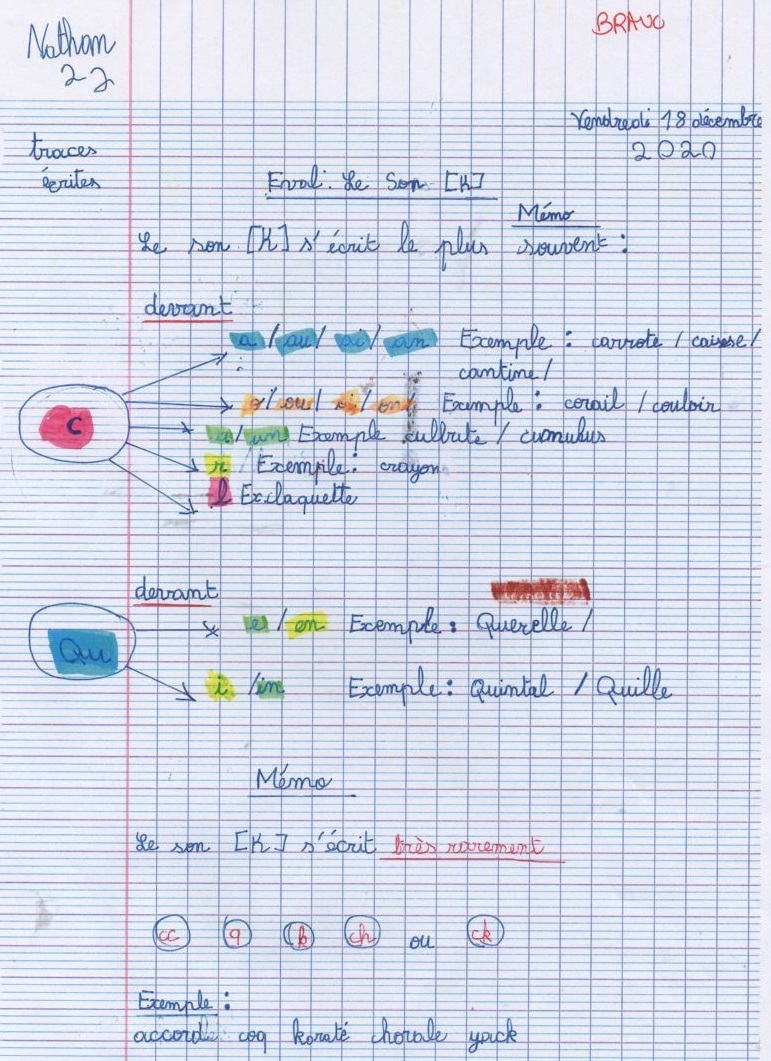 BRAVO
Nathan
22
Vendredi 18 décembre
2020
traces
écrites
Eval: Le Son [K]
Mémo
Le son [K] s'écrit le plus souvent :
devant
a / au / ai / an Exemple : carrote / caisse /
cantine /
o / ou / oi / on Exemple : corail / couloir
C
u / un Exemple culbute / cumulus
r / Exemple : crayon
l Ex:claquette
devant
e / en Exemple : Querelle /
Qu
i / in Exemple : Quintal / Quille
Mémo
Le son [K] s'écrit très rarement
cc q k ch ou ck
Exemple :
accorde coq karaté chorale yack